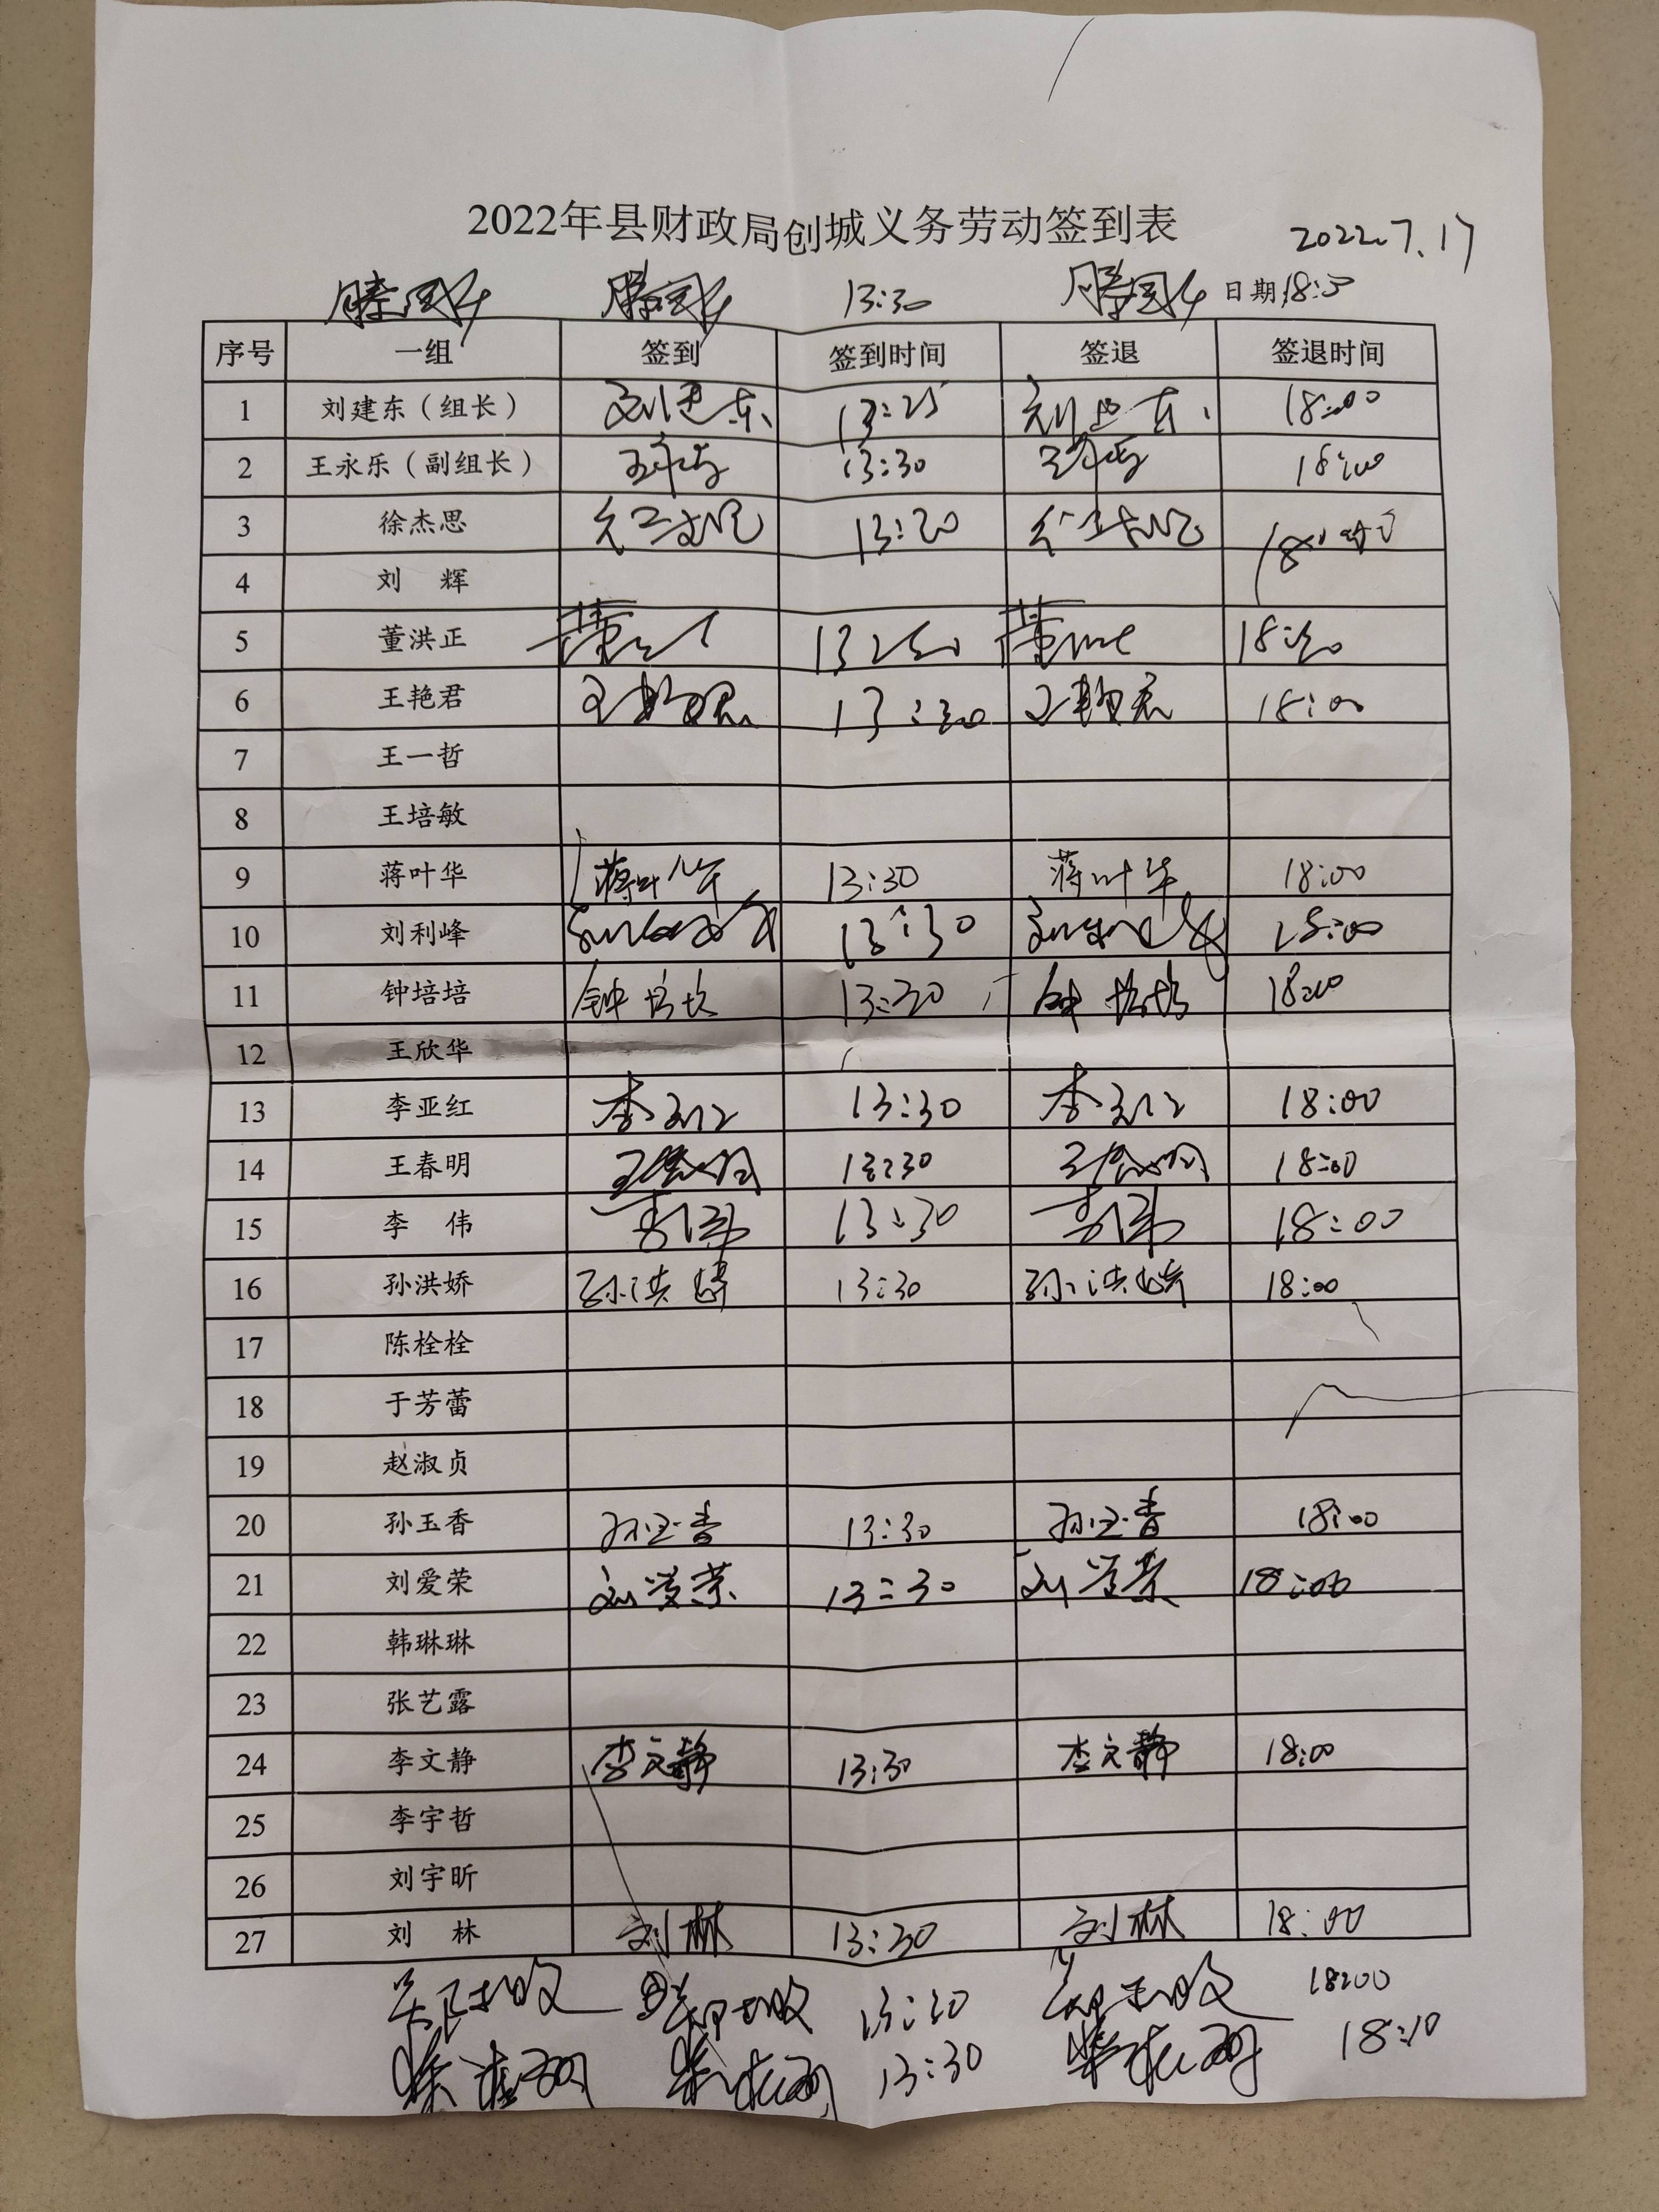 2022年县财政局创城义务劳动签到表 2022.7.17
13:30 日期
序号 一组 签到 签到时间 签退 签退时间
1 刘建东（组长） 刘建东 13:25 刘建东 18:00
2 王永乐（副组长） 13:30 18:00
3 徐杰思 徐杰思 13:20 徐杰思
4 刘 辉
5 董洪正 董洪正 董洪正
6 王艳君 王艳君 13:30 王艳君 18:00
7 王一哲
8 王培敏
9 蒋叶华 蒋叶华 13:30 蒋叶华 18:00
10 刘利峰 刘利峰 13:30 刘利峰 18:00
11 钟培培 钟培培 13:30 钟培培 18:00
12 王欣华
13 李亚红 李亚红 13:30 李亚红 18:00
14 王春明 王春明 13:30 王春明 18:00
15 李 伟 李伟 13:30 李伟 18:00
16 孙洪娇 孙洪娇 13:30 孙洪娇 18:00
17 陈栓栓
18 于芳蕾
19 赵淑贞
20 孙玉香 孙玉香 13:30 孙玉香 18:00
21 刘爱荣 刘爱荣 13:30 刘爱荣 18:00
22 韩琳琳
23 张艺露
24 李文静 李文静 13:30 李文静 18:00
25 李宇哲
26 刘宇昕
27 刘 林 刘林 13:30 刘林 18:00
13:30 18:00
13:30 18:10